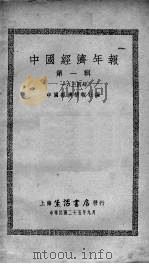 中國經濟年報
第一輯
中國經濟情報社編
上海 生活書店 發行
中華民國二十五年九月